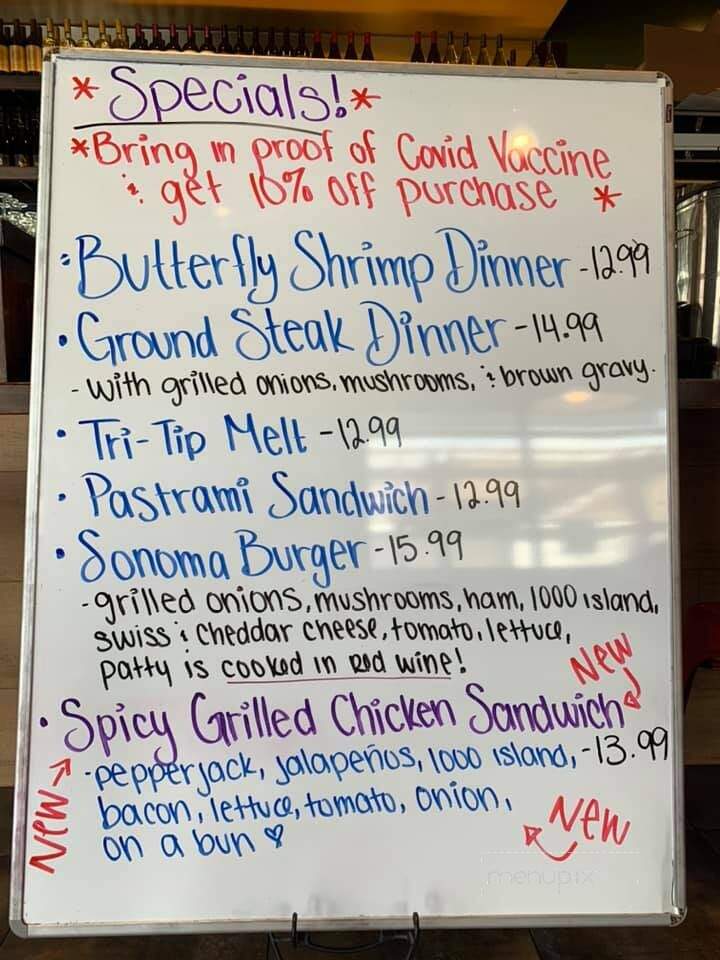 * Specials! *
*Bring in proof of Covid Vaccine
& get 10% off purchase *
• Butterfly Shrimp Dinner - 12.99
• Ground Steak Dinner - 14.99
- with grilled onions, mushrooms, & brown gravy.
• Tri-Tip Melt - 12.99
• Pastrami Sandwich - 12.99
• Sonoma Burger - 15.99
- grilled onions, mushrooms, ham, 1000 island,
swiss & cheddar cheese, tomato, lettuce,
patty is cooked in red wine!
New
• Spicy Grilled Chicken Sandwich
- pepperjack, jalapeños, 1000 island, - 13.99
bacon, lettuce, tomato, onion,
on a bun ♡
New
New
menupix